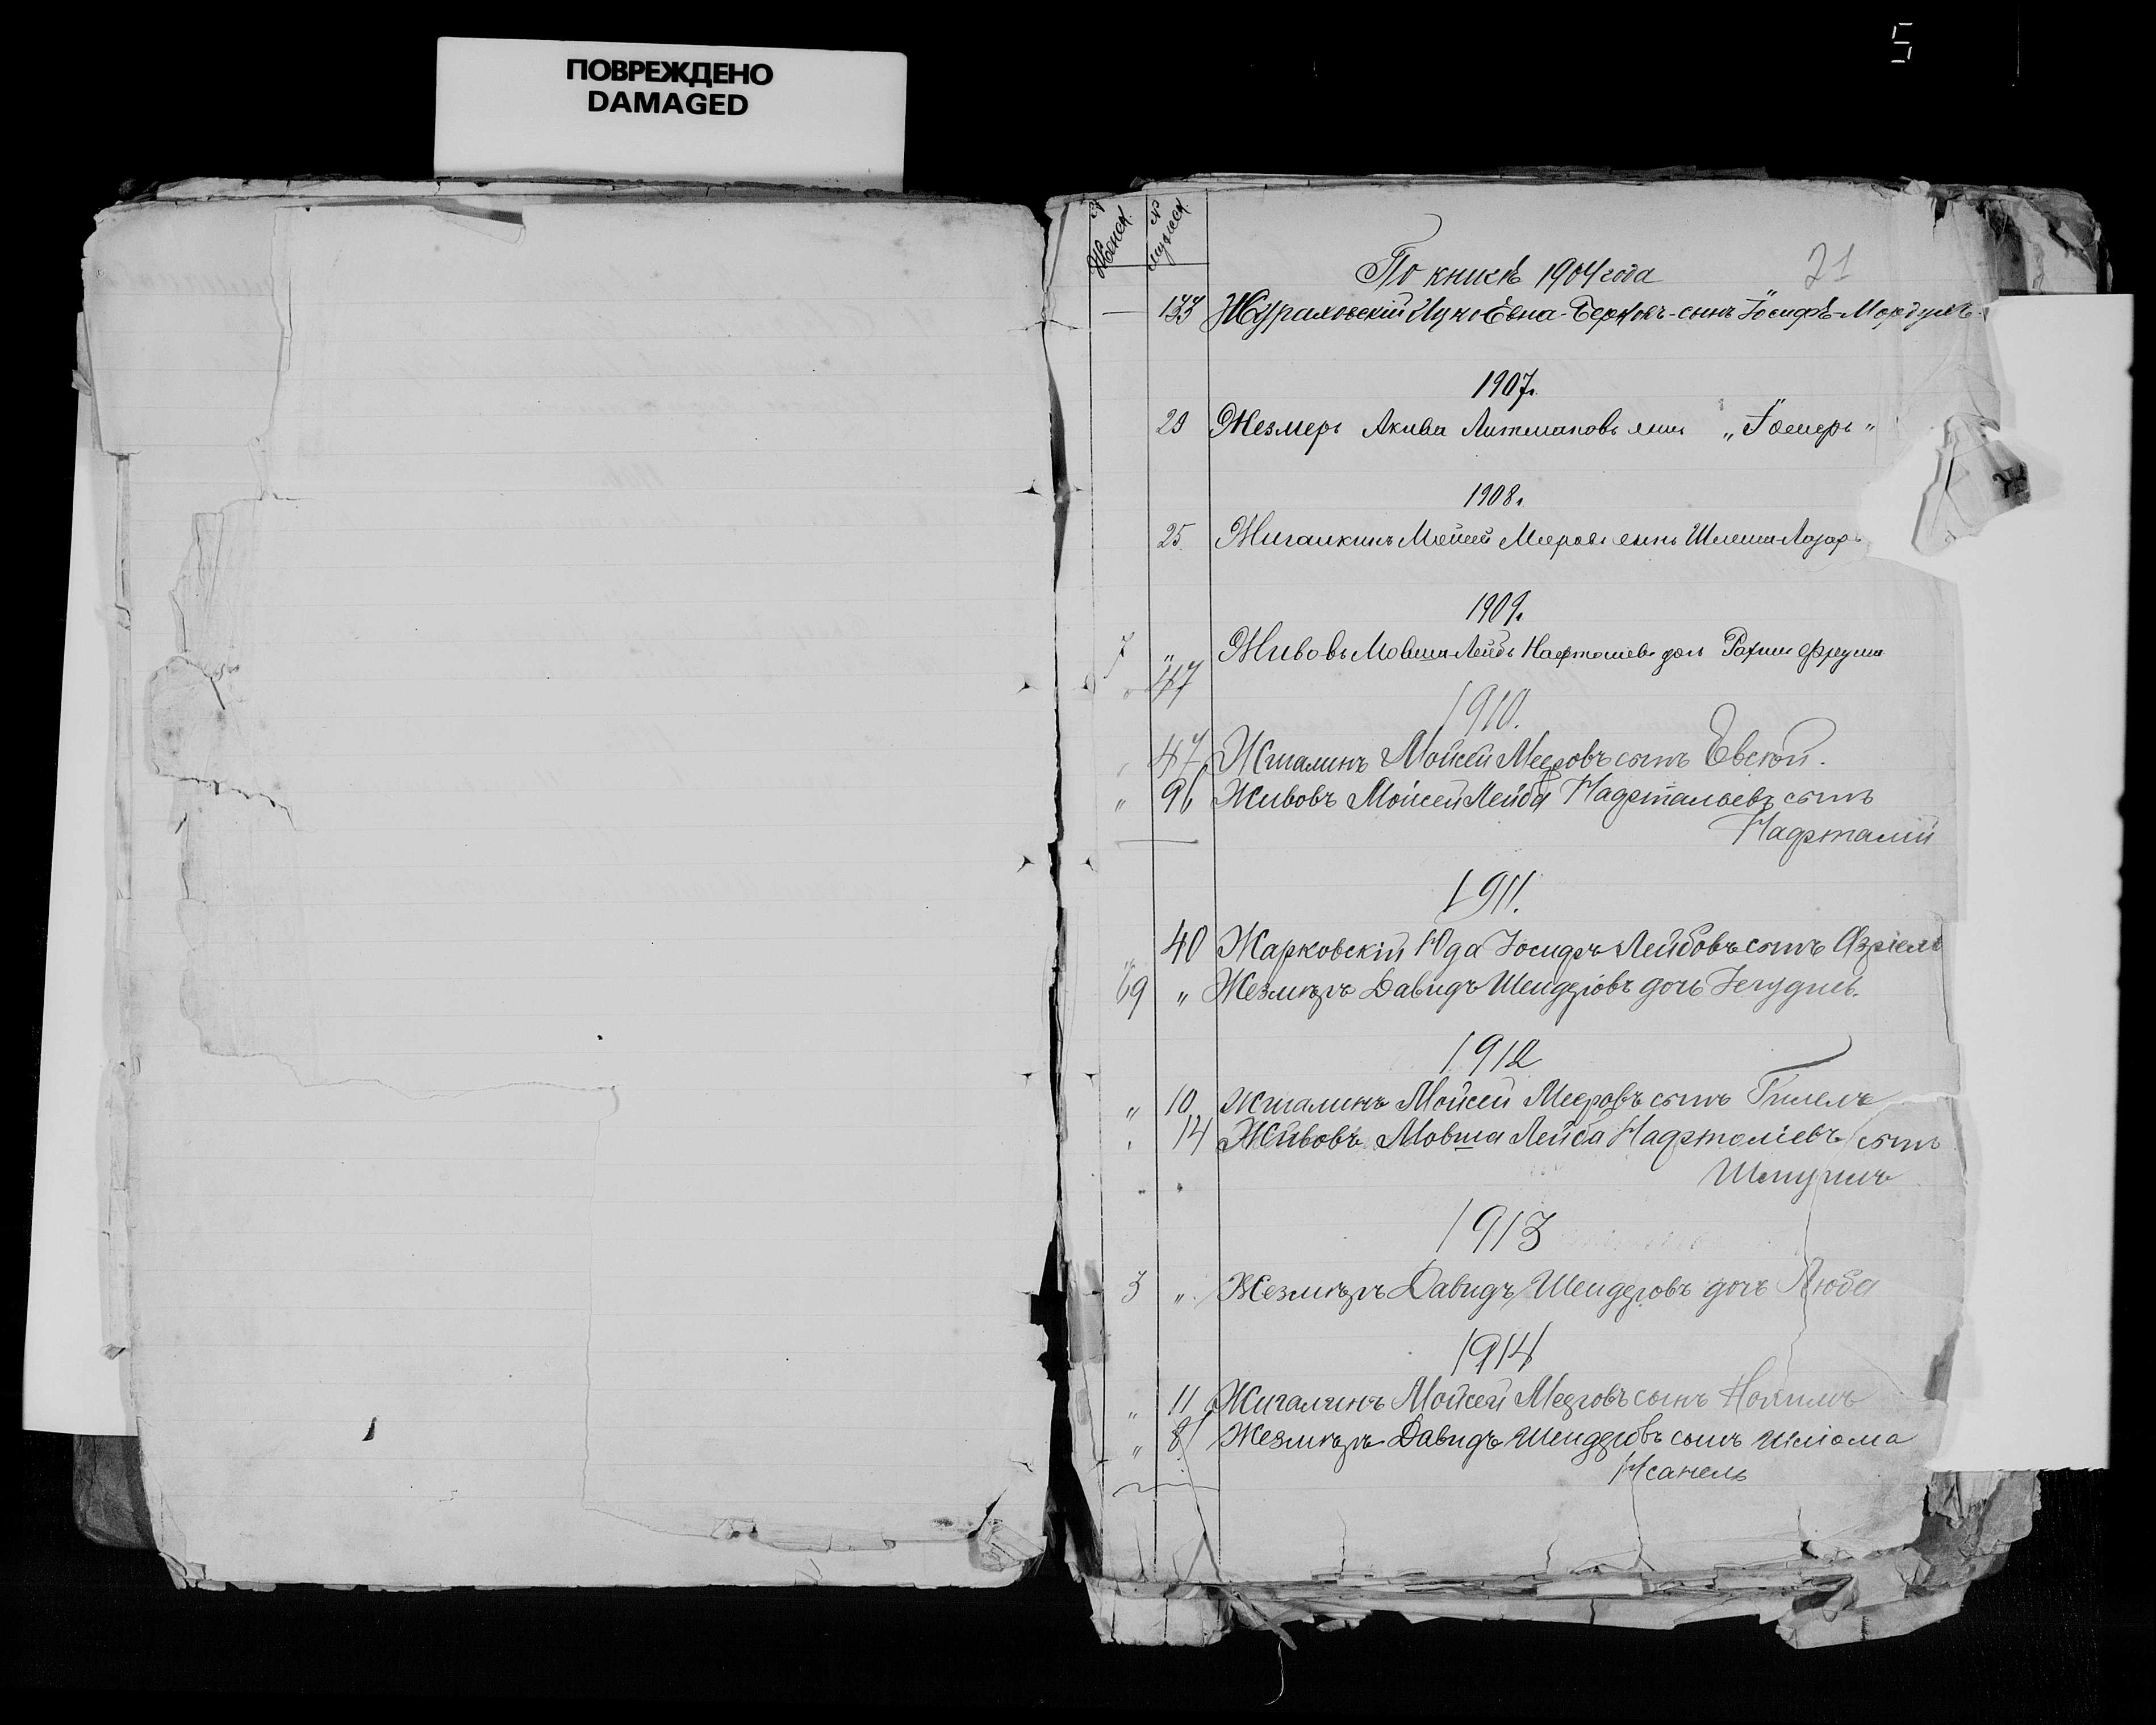 ПОВРЕЖДЕНО
DAMAGED
5
№ Женск.
№ мужеск
По книгѣ 1904 года
21
— 133 Жураховскій Ицко Евна-Берковъ-сынъ Іосифъ-Мордухъ.
1907.
29 Жезмеръ Акива сынъ „Іосиеръ"
1908.
25. Мойсей Мееровъ сынъ Шлема-Лазарь
1909.
7 „ Живовъ Мовша-Лейбъ дочь Рахиль Фрума
„ 47
1910.
„ 47 Жигалинъ Мойсей Мееровъ сынъ Евсѣй.
„ 96 Живовъ Мойсей Лейба Нафтальевъ сынъ
Нафталій
1911.
„ 40 Жарковскій Юда Іосифъ Лейбовъ сынъ Азріель
69 „ Жезмѣръ Давидъ Шендеровъ дочь Іегудисъ.
1912
„ 10 Жигалинъ Мойсей Мееровъ сынъ Гилелъ
„ 14 Живовъ Мовша Лейба Нафтоліевъ сынъ
1913
3 „ Жезмѣръ Давидъ Шендеровъ дочь Люба
1914
„ 11 Жигалинъ Мойсей Мееровъ сынъ Нохимъ
„ 81 Жезмѣръ Давидъ Шендеровъ сынъ Шліома
Исанель